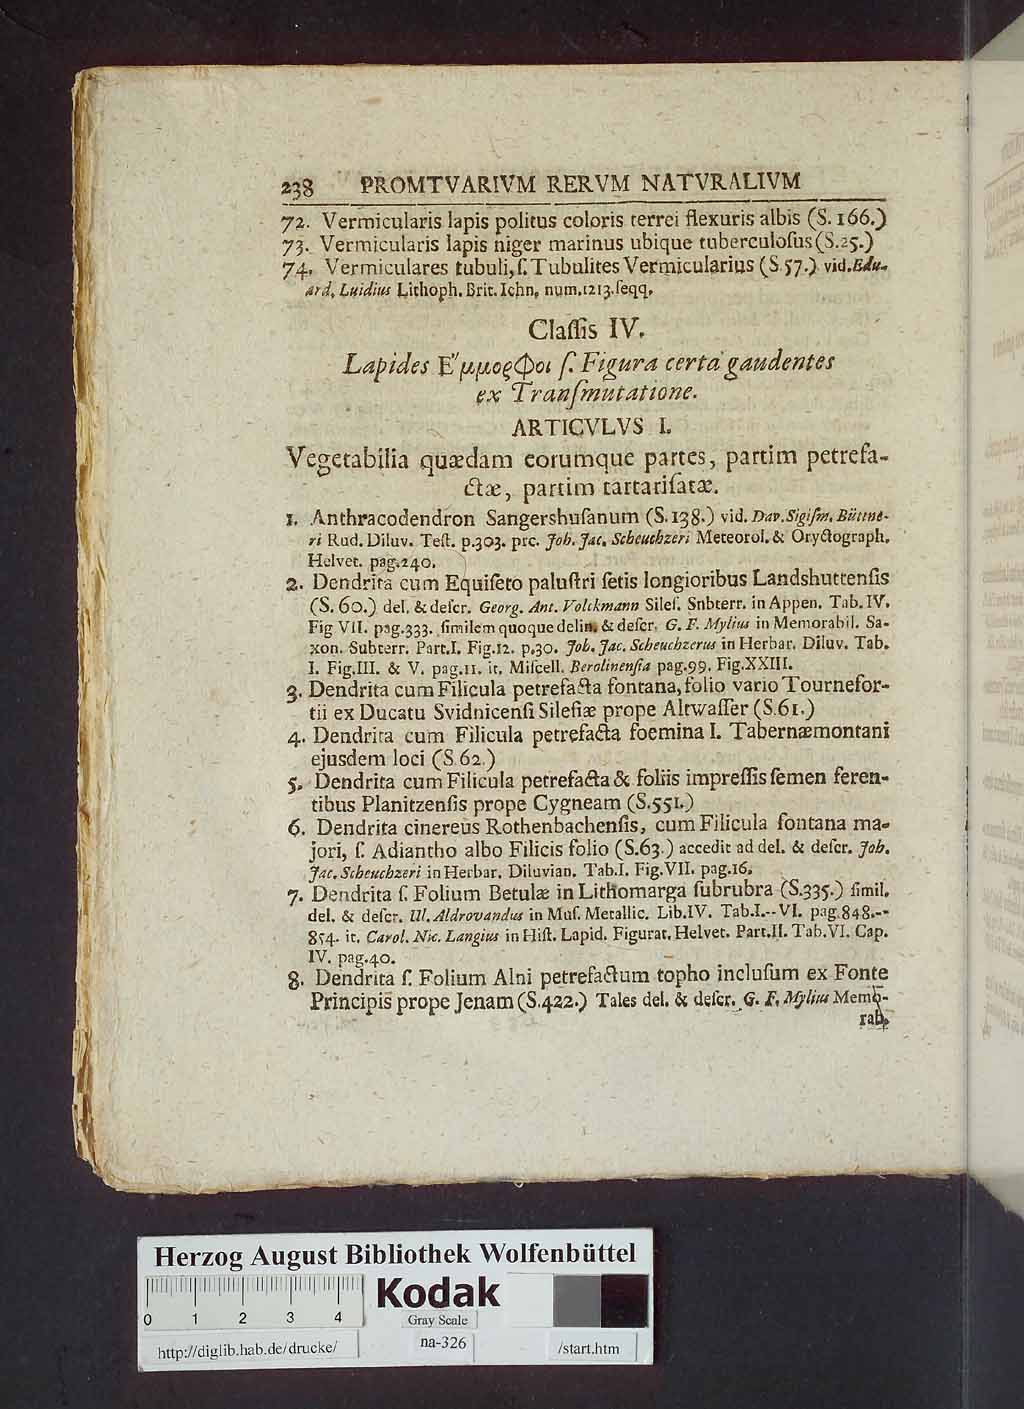 238 PROMTVARIVM RERVM NATVRALIVM
72. Vermicularis lapis politus coloris terrei flexuris albis (S. 166.)
73. Vermicularis lapis niger marinus ubique tuberculoſus (S.25.)
74. Vermiculares tubuli, ſ. Tubulites Vermicularius (S 57.) vid. Edu-
ard, Luidius Lithoph. Brit. Ichn, num.1213.ſeqq.
Claſſis IV.
Lapides Ἔμμορφοι ſ. Figura certa gaudentes
ex Tranſmutatione.
ARTICVLVS I.
Vegetabilia quædam eorumque partes, partim petrefa-
ctæ, partim tartariſatæ.
1. Anthracodendron Sangershuſanum (S. 138.) vid. Dav. Sigiſm. Büttne-
ri Rud. Diluv. Teſt. p.303. prc. Joh. Jac. Scheuchzeri Meteorol. & Oryctograph.
Helvet. pag.240.
2. Dendrita cum Equiſeto paluſtri ſetis longioribus Landshuttenſis
(S. 60.) del. & deſcr. Georg. Ant. Volckmann Sileſ. Snbterr. in Appen. Tab. IV.
Fig VII. pag.333. ſimilem quoque delin. & deſcr. G. F. Mylius in Memorabil. Sa-
xon. Subterr. Part.I. Fig.12. p.30. Joh. Jac. Scheuchzerus in Herbar. Diluv. Tab.
I. Fig.III. & V. pag.11. it. Miſcell. Berolinenſia pag.99. Fig.XXIII.
3. Dendrita cum Filicula petrefacta fontana, folio vario Tournefor-
tii ex Ducatu Svidnicenſi Sileſiæ prope Altwaſſer (S.61.)
4. Dendrita cum Filicula petrefacta foemina I. Tabernæmontani
ejusdem loci (S.62.)
5. Dendrita cum Filicula petrefacta & foliis impreſſis ſemen feren-
tibus Planitzenſis prope Cygneam (S.551.)
6. Dendrita cinereus Rothenbachenſis, cum Filicula fontana ma-
jori, ſ. Adiantho albo Filicis folio (S.63.) accedit ad del. & deſcr. Joh.
Jac. Scheuchzeri in Herbar. Diluvian. Tab.I. Fig.VII. pag.16.
7. Dendrita ſ. Folium Betulæ in Lithomarga ſubrubra (S.335.) ſimil.
del. & deſcr. Ul. Aldrovandus in Muſ. Metallic. Lib.IV. Tab.I.--VI. pag.848.--
854. it. Carol. Nic. Langius in Hiſt. Lapid. Figurat. Helvet. Part.II. Tab.VI. Cap.
IV. pag.40.
8. Dendrita ſ. Folium Alni petrefactum topho incluſum ex Fonte
Principis prope Jenam (S.422.) Tales del. & deſcr. G. F. Mylius Memo-
rab.
Herzog August Bibliothek Wolfenbüttel
0 1 2 3 4
Kodak
Gray Scale
http://diglib.hab.de/drucke/ na-326 /start.htm